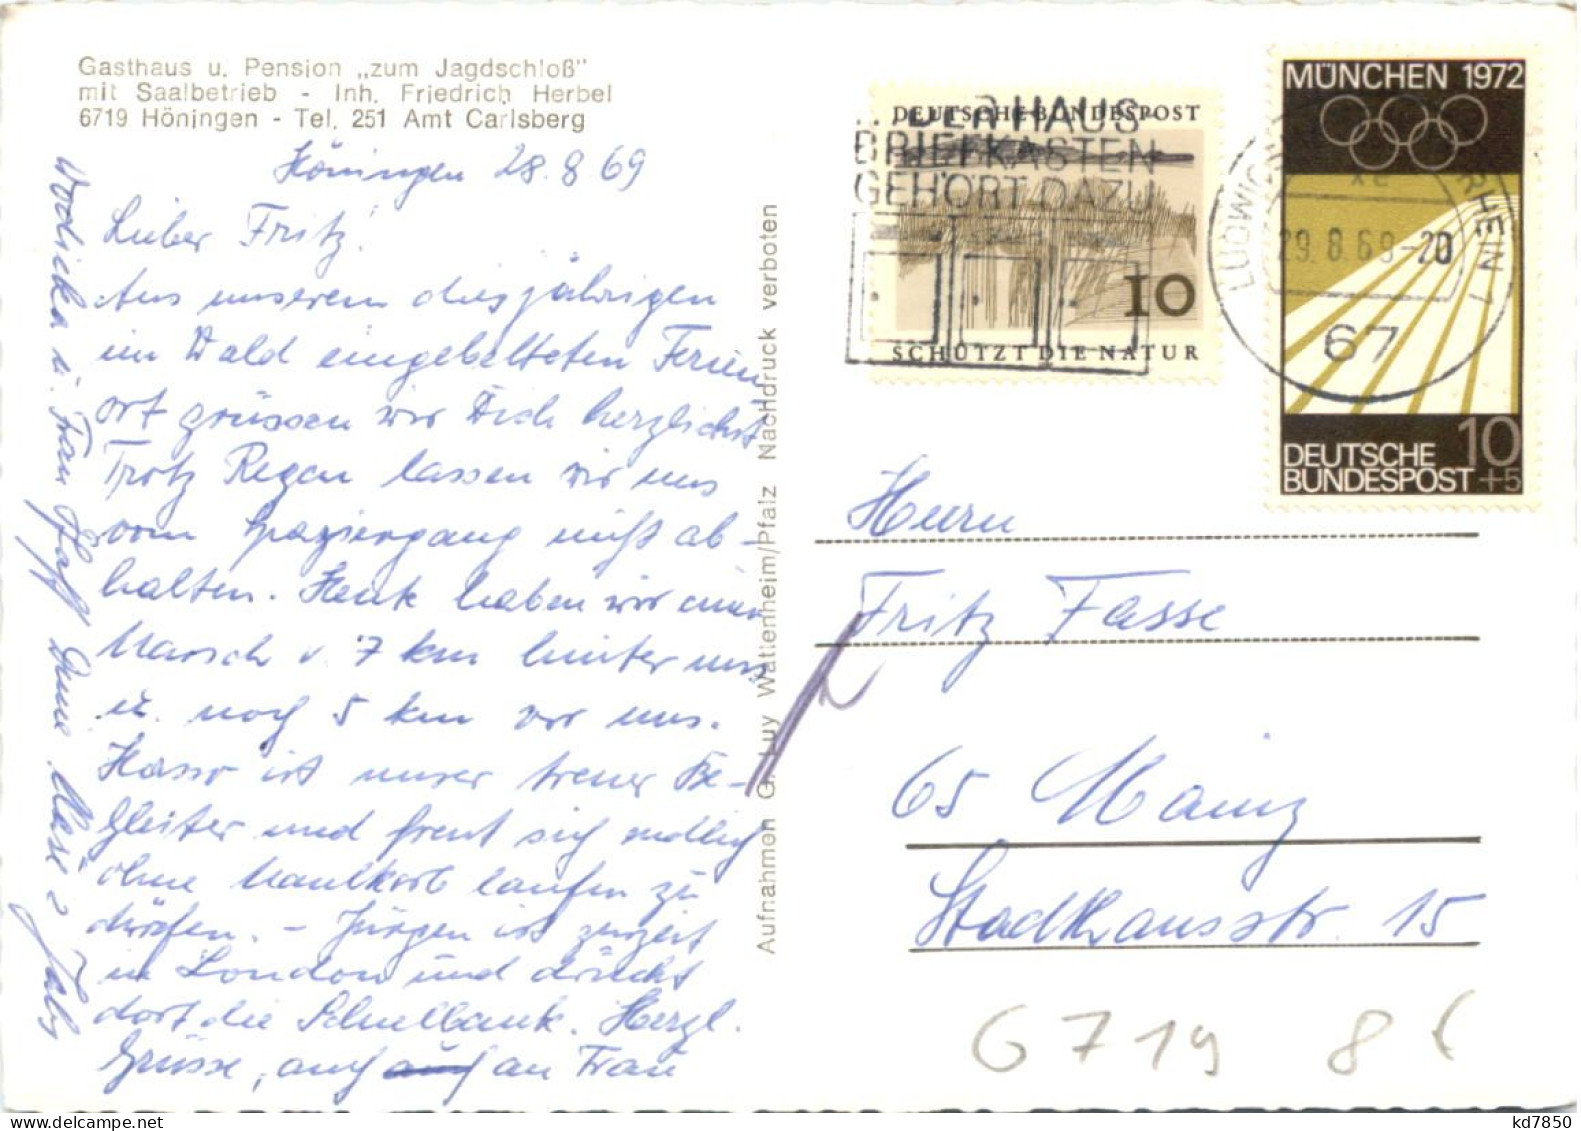 Gasthaus u. Pension „zum Jagdschloß"
mit Saalbetrieb - Inh. Friedrich Herbel
6719 Höningen - Tel. 251 Amt Carlsberg
Höningen 28.8.69
Lieber Fritz!
Aus unserem diesjährigen
im Wald eingebetteten Ferien
ort grüssen wir Dich herzlichst
Trotz Regen lassen wir uns
vom Spaziergang nicht ab-
halten. Heute haben wir einen
Marsch v. 7 km hinter uns
u. noch 5 km vor uns.
Hasso ist unser treuer Be-
gleiter und freut sich endlich
ohne Maulkorb laufen zu
dürfen. - Jürgen ist zurzeit
in London und drückt
dort die Schulbank. Herzl.
Grüsse, auch an Frau
u. Frau
Aufnahmen G. Luy Wattenheim/Pfalz Nachdruck verboten
DEUTSCHE BUNDESPOST
10
SCHÜTZT DIE NATUR
.. DER HAUS
BRIEFKASTEN
GEHÖRT DAZU
MÜNCHEN 1972
10
DEUTSCHE
BUNDESPOST +5
29.8.69-20
67
Herrn
Fritz Fasse
65 Mainz
Stadthausstr. 15
6719 8
kd7850